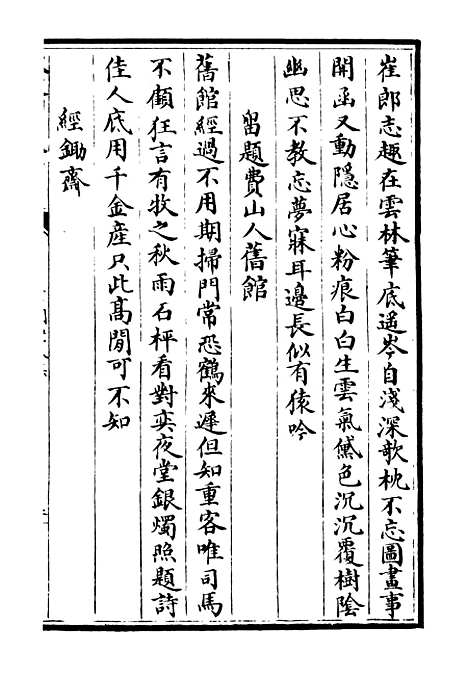 崔郎志趣在雲林筆底遥岑自淺深歌枕不忘圖畫事
開函又動隱居心粉痕白白生雲氣黛色沉沉覆樹陰
幽思不教忘夢寐耳邊長似有猿吟
留題費山人舊館
舊館經過不用期掃門常恐鶴來遲但知重客唯司馬
不顧狂言有牧之秋雨石枰看對奕夜堂銀燭照題詩
佳人底用千金産只此髙閒可不知
經鋤齋